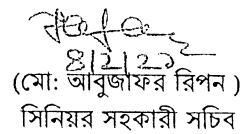 ৪/২/২১
(মো: আবুজাফর রিপন )
সিনিয়র সহকারী সচিব